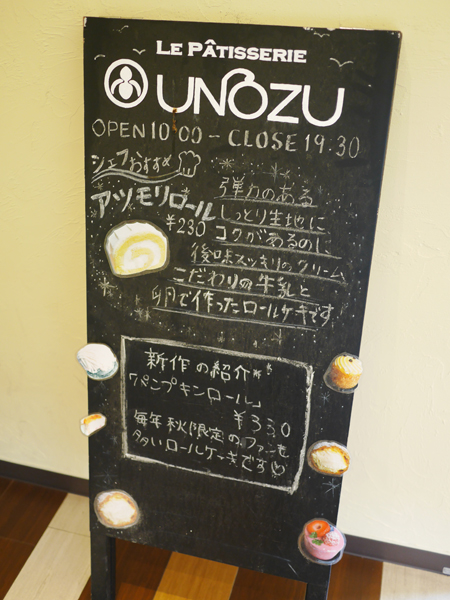 LE PÂTISSERIE
UNOZU
OPEN 10:00 - CLOSE 19:30
シェフおすすめ
アツモリロール
¥230
弾力のある
しっとり生地に
コクがあるのに
後味スッキリのクリーム
こだわりの牛乳と
卵で作ったロールケーキです
新作の紹介
「パンプキンロール」
¥330
毎年秋限定のファンも
多いロールケーキです